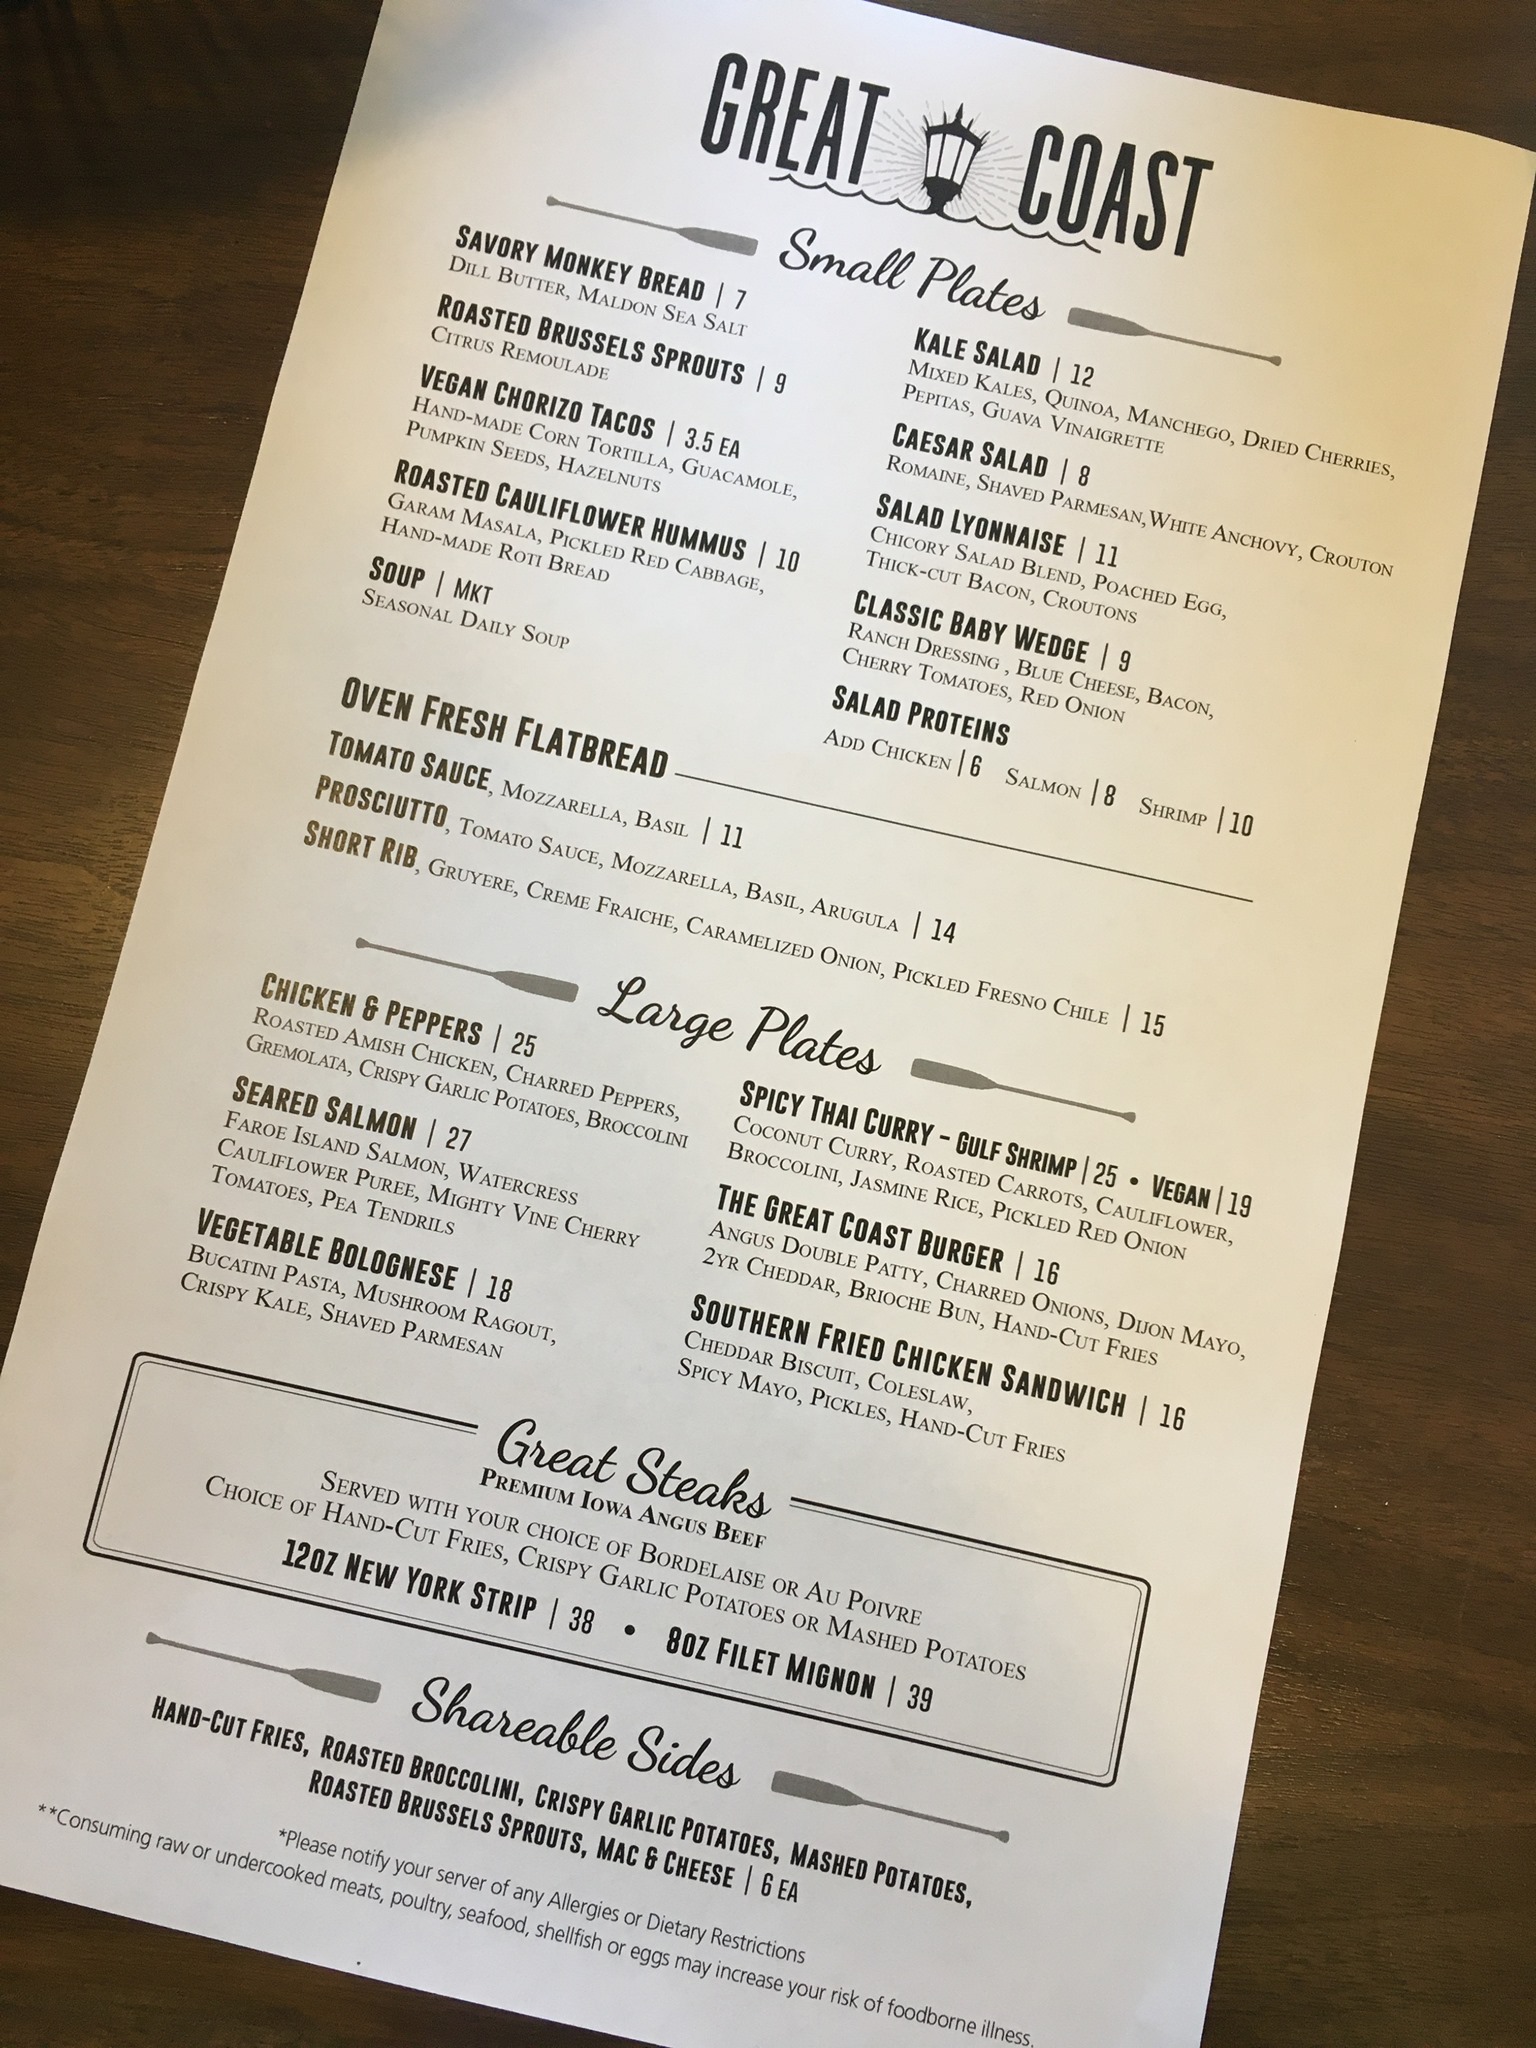 GREAT COAST
Small Plates
SAVORY MONKEY BREAD | 7
DILL BUTTER, MALDON SEA SALT
ROASTED BRUSSELS SPROUTS | 9
CITRUS REMOULADE
VEGAN CHORIZO TACOS | 3.5 EA
HAND-MADE CORN TORTILLA, GUACAMOLE,
PUMPKIN SEEDS, HAZELNUTS
ROASTED CAULIFLOWER HUMMUS | 10
GARAM MASALA, PICKLED RED CABBAGE,
HAND-MADE ROTI BREAD
SOUP | MKT
SEASONAL DAILY SOUP
KALE SALAD | 12
MIXED KALES, QUINOA, MANCHEGO, DRIED CHERRIES,
PEPITAS, GUAVA VINAIGRETTE
CAESAR SALAD | 8
ROMAINE, SHAVED PARMESAN, WHITE ANCHOVY, CROUTON
SALAD LYONNAISE | 11
CHICORY SALAD BLEND, POACHED EGG,
THICK-CUT BACON, CROUTONS
CLASSIC BABY WEDGE | 9
RANCH DRESSING , BLUE CHEESE, BACON,
CHERRY TOMATOES, RED ONION
SALAD PROTEINS
ADD CHICKEN | 6 SALMON | 8 SHRIMP | 10
OVEN FRESH FLATBREAD
TOMATO SAUCE, MOZZARELLA, BASIL | 11
PROSCIUTTO, TOMATO SAUCE, MOZZARELLA, BASIL, ARUGULA | 14
SHORT RIB, GRUYERE, CREME FRAICHE, CARAMELIZED ONION, PICKLED FRESNO CHILE | 15
Large Plates
CHICKEN & PEPPERS | 25
ROASTED AMISH CHICKEN, CHARRED PEPPERS,
GREMOLATA, CRISPY GARLIC POTATOES, BROCCOLINI
SEARED SALMON | 27
FAROE ISLAND SALMON, WATERCRESS
CAULIFLOWER PUREE, MIGHTY VINE CHERRY
TOMATOES, PEA TENDRILS
VEGETABLE BOLOGNESE | 18
BUCATINI PASTA, MUSHROOM RAGOUT,
CRISPY KALE, SHAVED PARMESAN
SPICY THAI CURRY - GULF SHRIMP | 25 • VEGAN | 19
COCONUT CURRY, ROASTED CARROTS, CAULIFLOWER,
BROCCOLINI, JASMINE RICE, PICKLED RED ONION
THE GREAT COAST BURGER | 16
ANGUS DOUBLE PATTY, CHARRED ONIONS, DIJON MAYO,
2YR CHEDDAR, BRIOCHE BUN, HAND-CUT FRIES
SOUTHERN FRIED CHICKEN SANDWICH | 16
CHEDDAR BISCUIT, COLESLAW,
SPICY MAYO, PICKLES, HAND-CUT FRIES
Great Steaks
PREMIUM IOWA ANGUS BEEF
SERVED WITH YOUR CHOICE OF BORDELAISE OR AU POIVRE
CHOICE OF HAND-CUT FRIES, CRISPY GARLIC POTATOES OR MASHED POTATOES
12OZ NEW YORK STRIP | 38 • 8OZ FILET MIGNON | 39
Shareable Sides
HAND-CUT FRIES, ROASTED BROCCOLINI, CRISPY GARLIC POTATOES, MASHED POTATOES,
ROASTED BRUSSELS SPROUTS, MAC & CHEESE | 6 EA
*Please notify your server of any Allergies or Dietary Restrictions
**Consuming raw or undercooked meats, poultry, seafood, shellfish or eggs may increase your risk of foodborne illness.